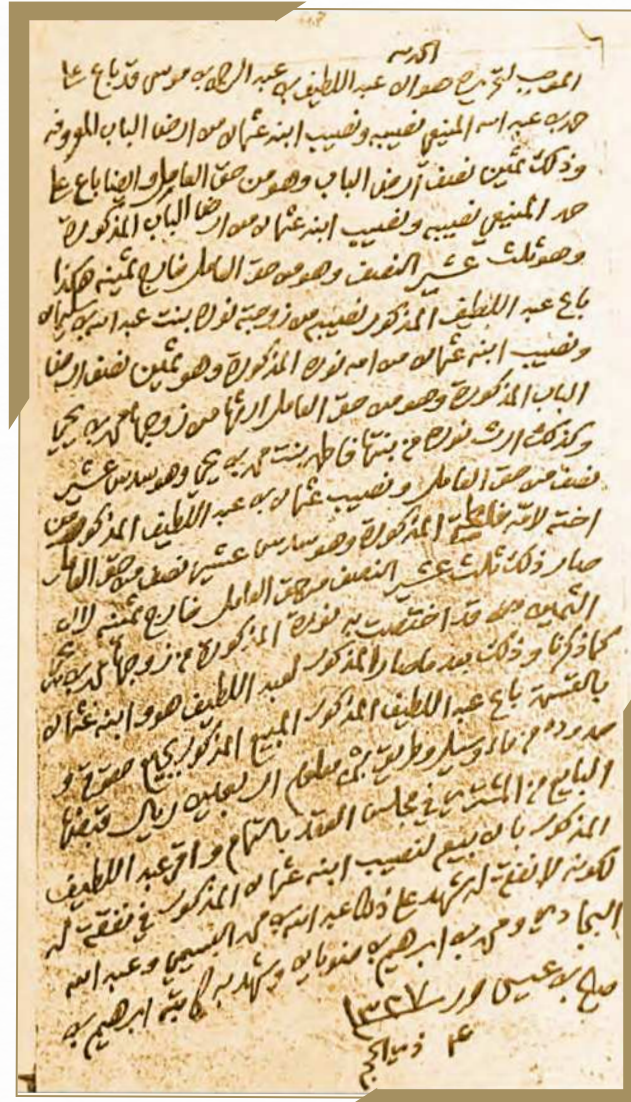 الحمد لله
الموجب لتحريره هو ان عبد اللطيف بن عبد الرحمن بن موسى قد باع على
حمد بن عبد الله المنيعي نصيبه ونصيب ابنه عثمان من ارض الباب المعروفه
وذلك ثمين نصف أرض الباب وهو من حق العامل وايضا باع على
حمد المنيعي نصيبه ونصيب ابنه عثمان من ارض الباب المذكورة
وهو ثلث عشير النصف وهو من حق العامل خارج ثمينه هكذا
باع عبد اللطيف المذكور نصيبه من زوجته نوره بنت عبد الله بن سليمان
ونصيب ابنه عثمان من امه نوره المذكورة وهو ثمين نصف ارض
الباب المذكورة وهو من حق العامل ارثها من زوجها محمد بن يحيا
وكذلك ارث نوره من بنتها فاطمه بنت محمد بن يحيا وهو سدس عشير
نصف من حق العامل ونصيب عثمان بن عبد اللطيف المذكور من
اخته لامه فاطمة المذكورة وهو سدس عشير نصف من حق العامل
صار ذلك ثلث عشير النصف من حق العامل خارج ثمينه لان
الثمين قد اختصت به نورة المذكورة من زوجها محمد بن يحيا
كما ذكرنا وذلك بعد ما صار المذكور لعبد اللطيف هو وابنه عثمان
بالقسمة باع عبد اللطيف المذكور المبيع المذكور بجميع حقوقه و
حدوده من ماء وسيل وطريق بثمن معلوم اربعين ريال قبضها
البايع من المشتري في مجلس العقد بالتمام واقر عبد اللطيف
المذكور بان بيعه لنصيب ابنه عثمان المذكور في نفقة له
لكونه لا نفقة له شهد على ذلك عبد الله بن محمد البسيمي وعبد الله
البجادي ومحمد بن ابراهيم بن وشهد به كاتبه ابراهيم بن
صالح بن عيسى حرر ١٣٣٧
٤ ذي الحجه